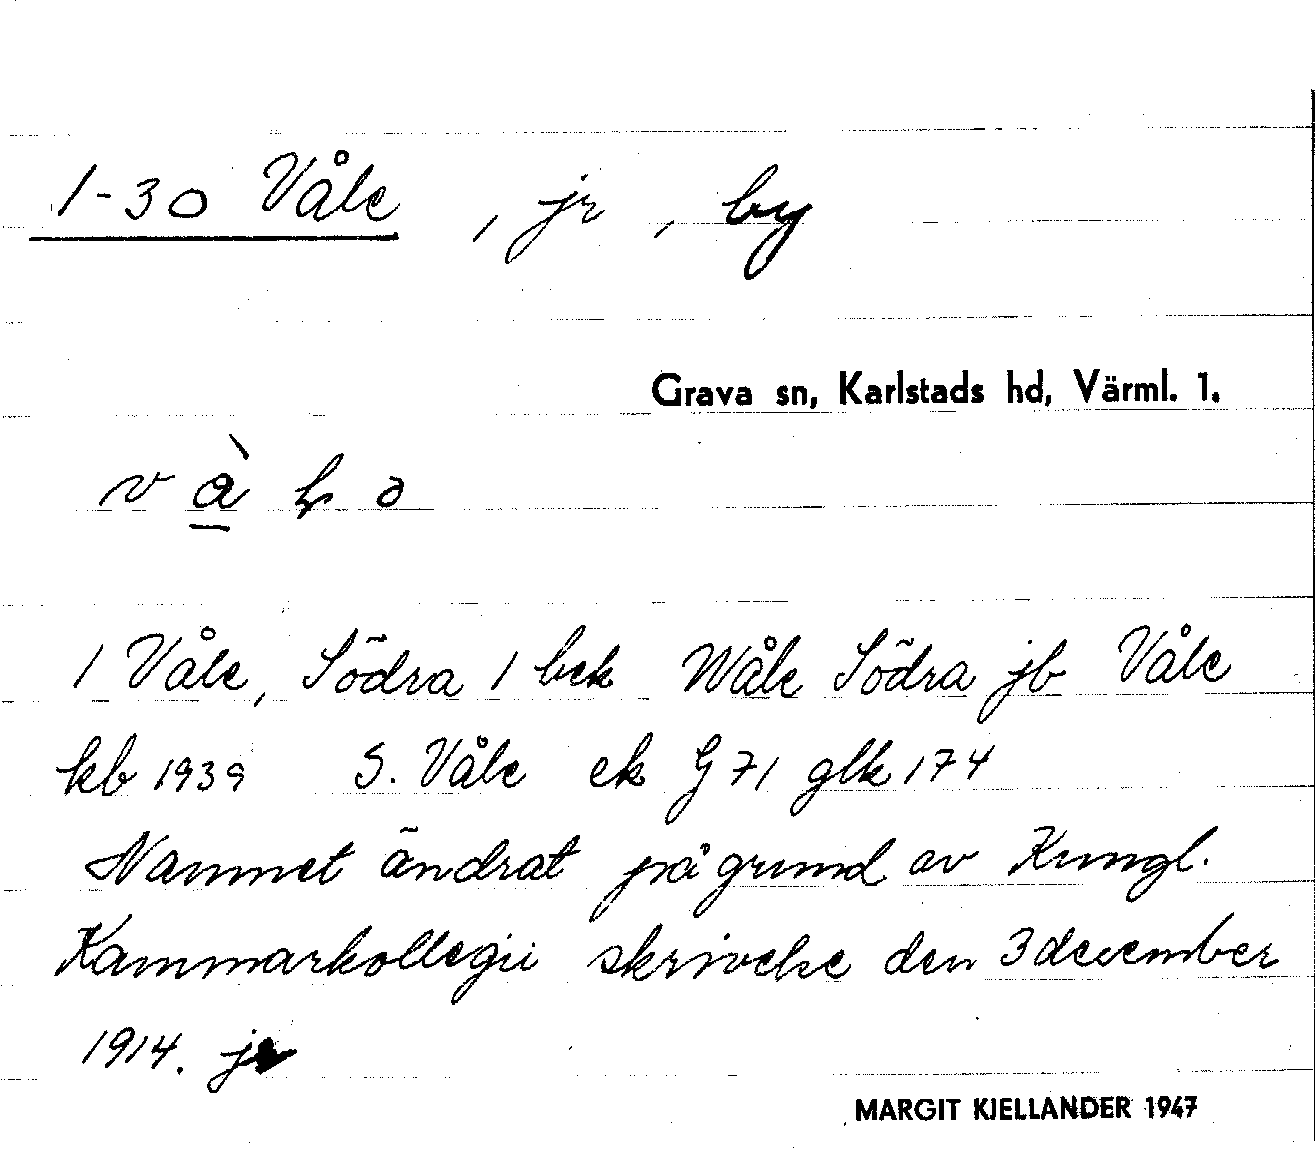 1-30 Våle , jr , by
Grava sn, Karlstads hd, Värml. 1.
1 Våle, Södra 1 bek Wåle Södra jb Våle
kb 1939 S. Våle ek G 71 glk 174
Namnet ändrat på grund av Kungl.
Kammarkollegii skrivelse den 3 december
1914. jr
MARGIT KJELLANDER 1947